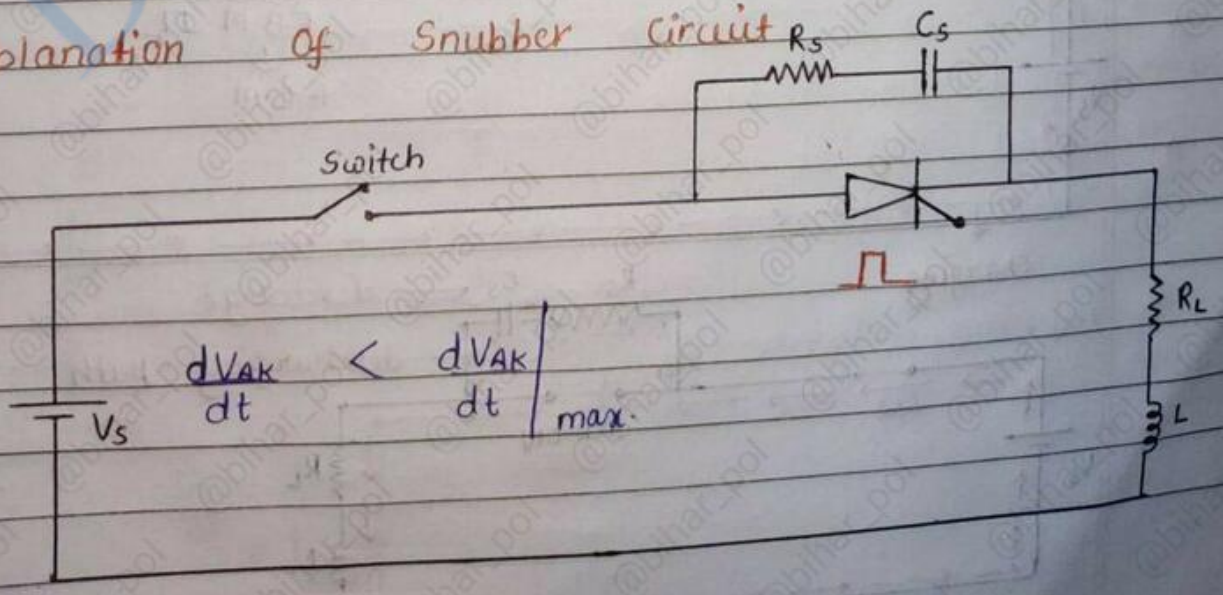 planation Of Snubber Circuit
Rs Cs
Switch
RL
dVAK/dt < dVAK/dt | max.
Vs
L
@bihar_pol